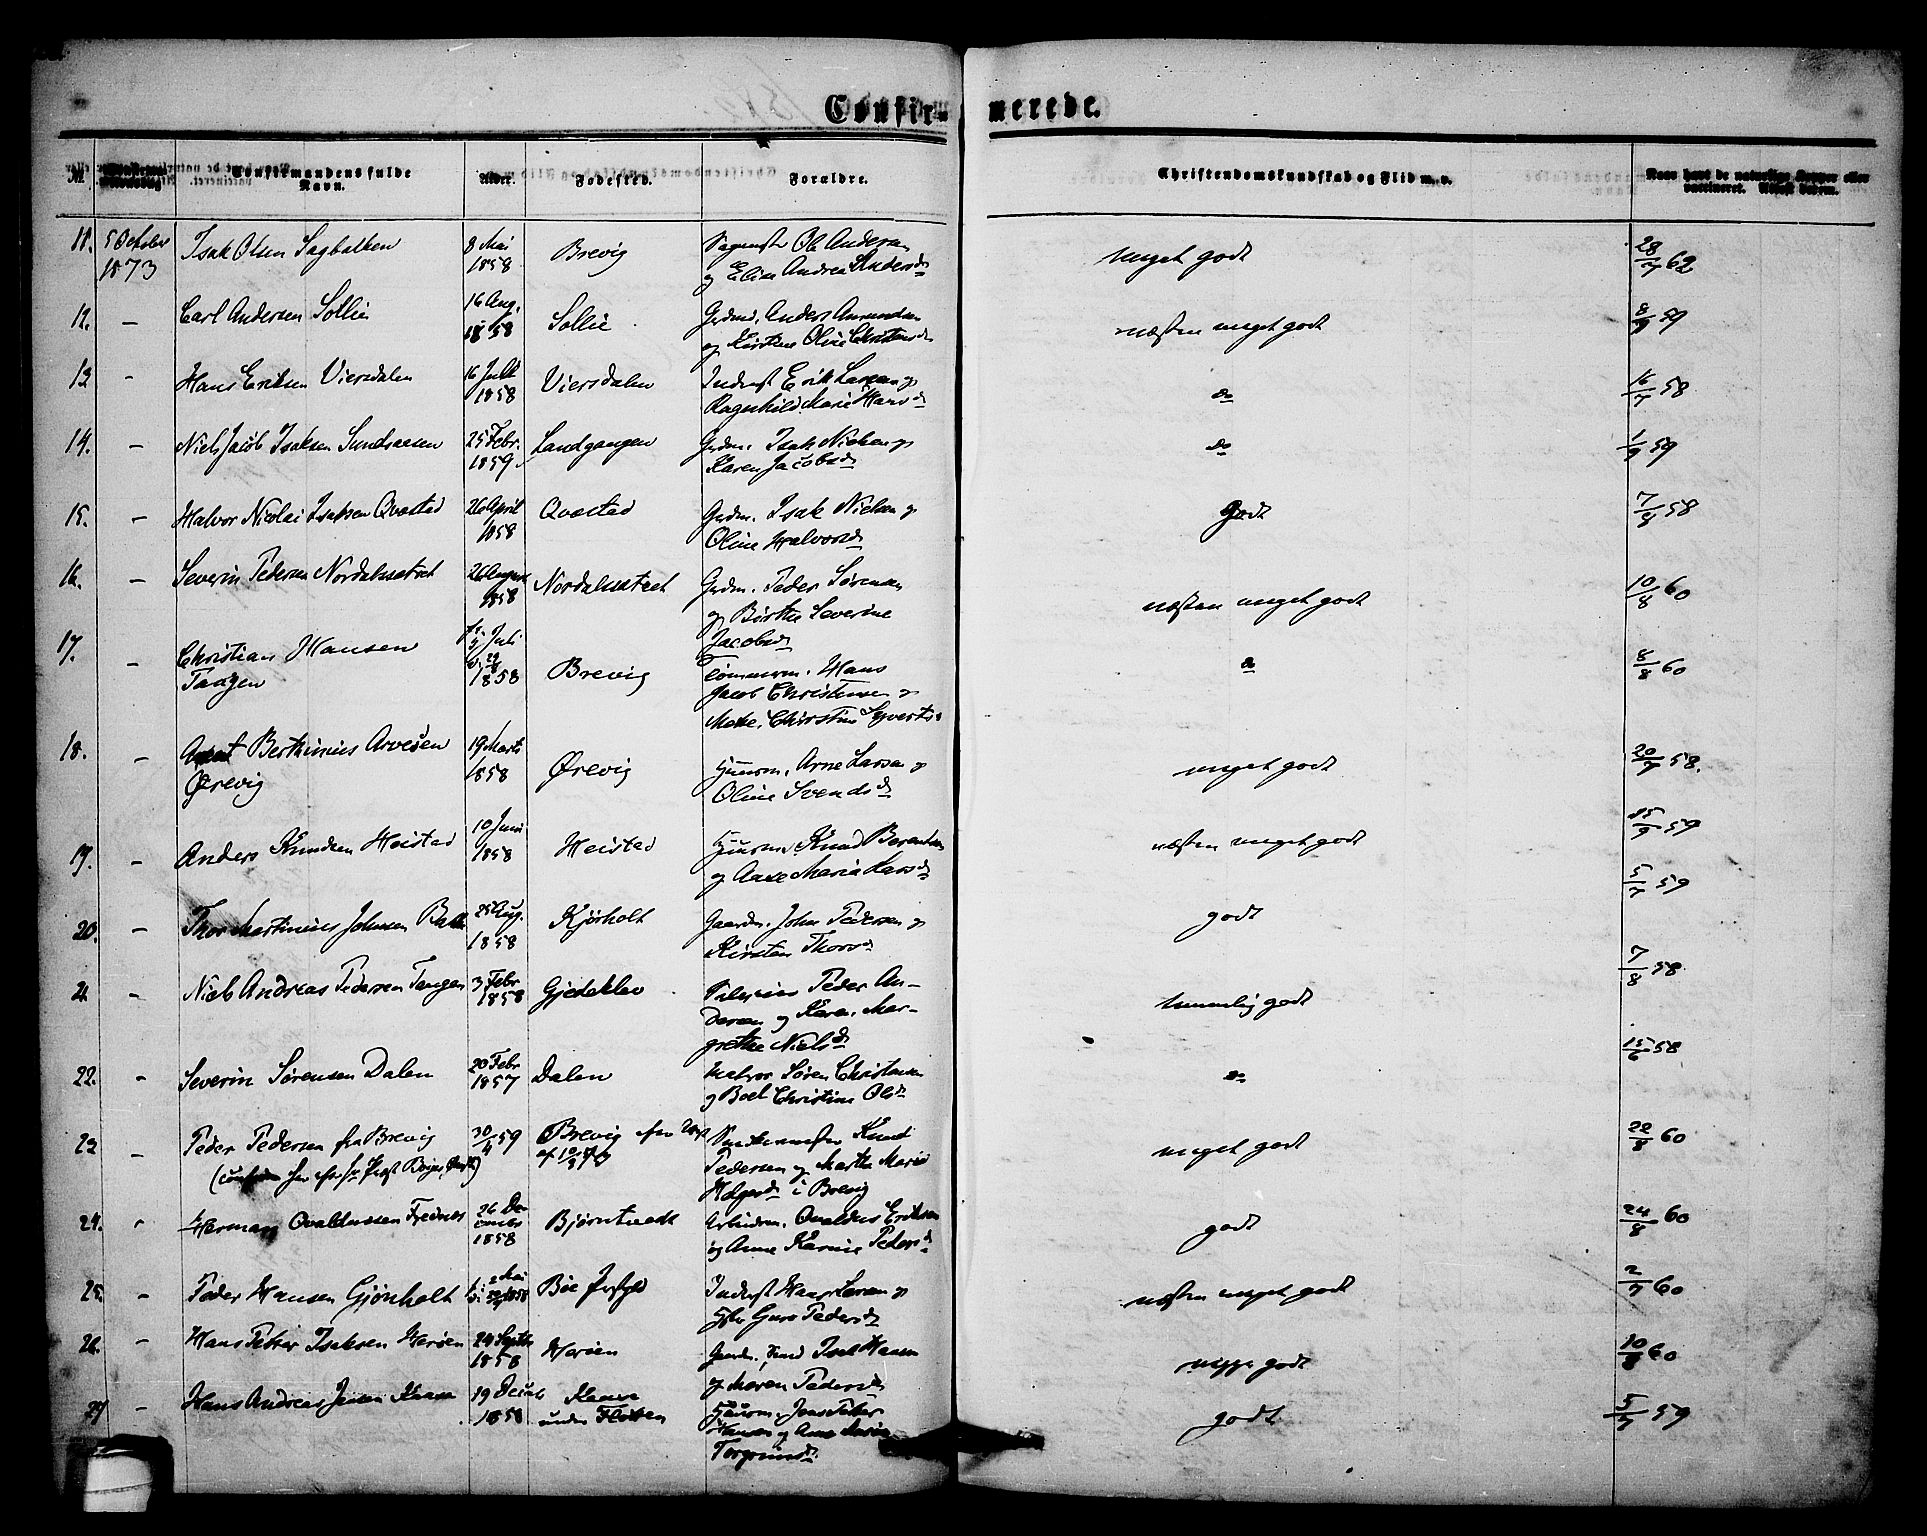 Confirmerede.
Confirmandens fulde Navn.
Alder.
Fødested.
Forældre.
Christendomskundskab og Flid m. v.
Naar havt de naturlige Kopper eller vaccineret. Attest derom.
11. 5 October 1873 Isak Olsen Sagbakken 8 Mai 1858 Brevig Ole Andersen og Elise Andrea Andersd. meget godt 28/7 62
12. – Carl Andersen Sollie 16 Aug. 1858 Sollie Anders Amundsen og Kirstine Oline Christensd. næsten meget godt 8/9 59
13 – Hans Eriksen Viersdalen 16 Juli 1858 Viersdalen Inderst Erik Larsen og Ragnhild Marie Hansd. do 16/7 58
14. – Niels Jacob Isaksen Sundsaasen 25 Febr. 1859 Landgangen Grdm. Isak Nielsen og Karen Jacobsd. do 1/9 59
15. – Halvor Nicolai Isaksen Qvestad 26 April 1858 Qvestad Grdm. Isak Nielsen og Oline Halvorsd. Godt 7/8 58
16. – Severin Pedersen Nordalsætret 26 August 1858 Nordalsætret Grdm. Peder Sørensen og Birthe Severine Jacobsd. næsten meget godt 10/8 60
17. – Christian Hansen Tangen Juli 1858 Brevig Tømmerm. Hans Jacob Christensen og Christine Syverts. do 8/8 60
18. – Bertinius Arvesen Ørevig 19 Marts 1858 Ørevig Huusm. Arne Larsen og Oline Svendsd. meget godt 20/7 58.
19. – Anders Knudsen Heistad 10 Juni 1858 Heistad Huusm. Knud Berentsen og Anne Maria Larsd. næsten meget godt 15/9 59
20. – Thor Martinius Johnsen 25 Aug. 1858 Kjørholt Gaardm. John Pedersen og Kirsten Thorsd. godt 5/7 59
21 – Niels Andreas Pedersen Tangen 3 Febr 1858 Gjedeklev Peder Andersen og Karen Margrethe Nielsd. temmelig godt 7/8 58
22. – Severin Sørensen Dalen 20 Febr 1857 Dalen Søren Christensen og Boel Christine Olsd. do 15/6 58
23 – Peder Pedersen fra Brevig 30/4 59 Brevig Knud Pedersen og Marthe Marie Holgersd. i Brevig meget godt 22/8 60
24. – Herman Osvaldussen Frednes 26 December 1858 Bjørntvedt Arbeidsm. Osvaldus Eriksen og Anne Karine Pedersd. godt 24/8 60
25. – Peder Hansen Gjønholt Mai 1858 Bøe Inderst Hans Larsen og Guro Pedersd. næsten meget godt 2/7 60
26. – Hans Petter Isaksen Herøen 24 Septbr 1858 Herøen Isak Hansen og Maren Pedersd. meget godt 10/8 60
27 – Hans Andreas Jensen 19 Decbr 1858. under Flåtten Huusm. Jens Peter Hansen og Anne Maria Torgrimsd. godt 5/7 59